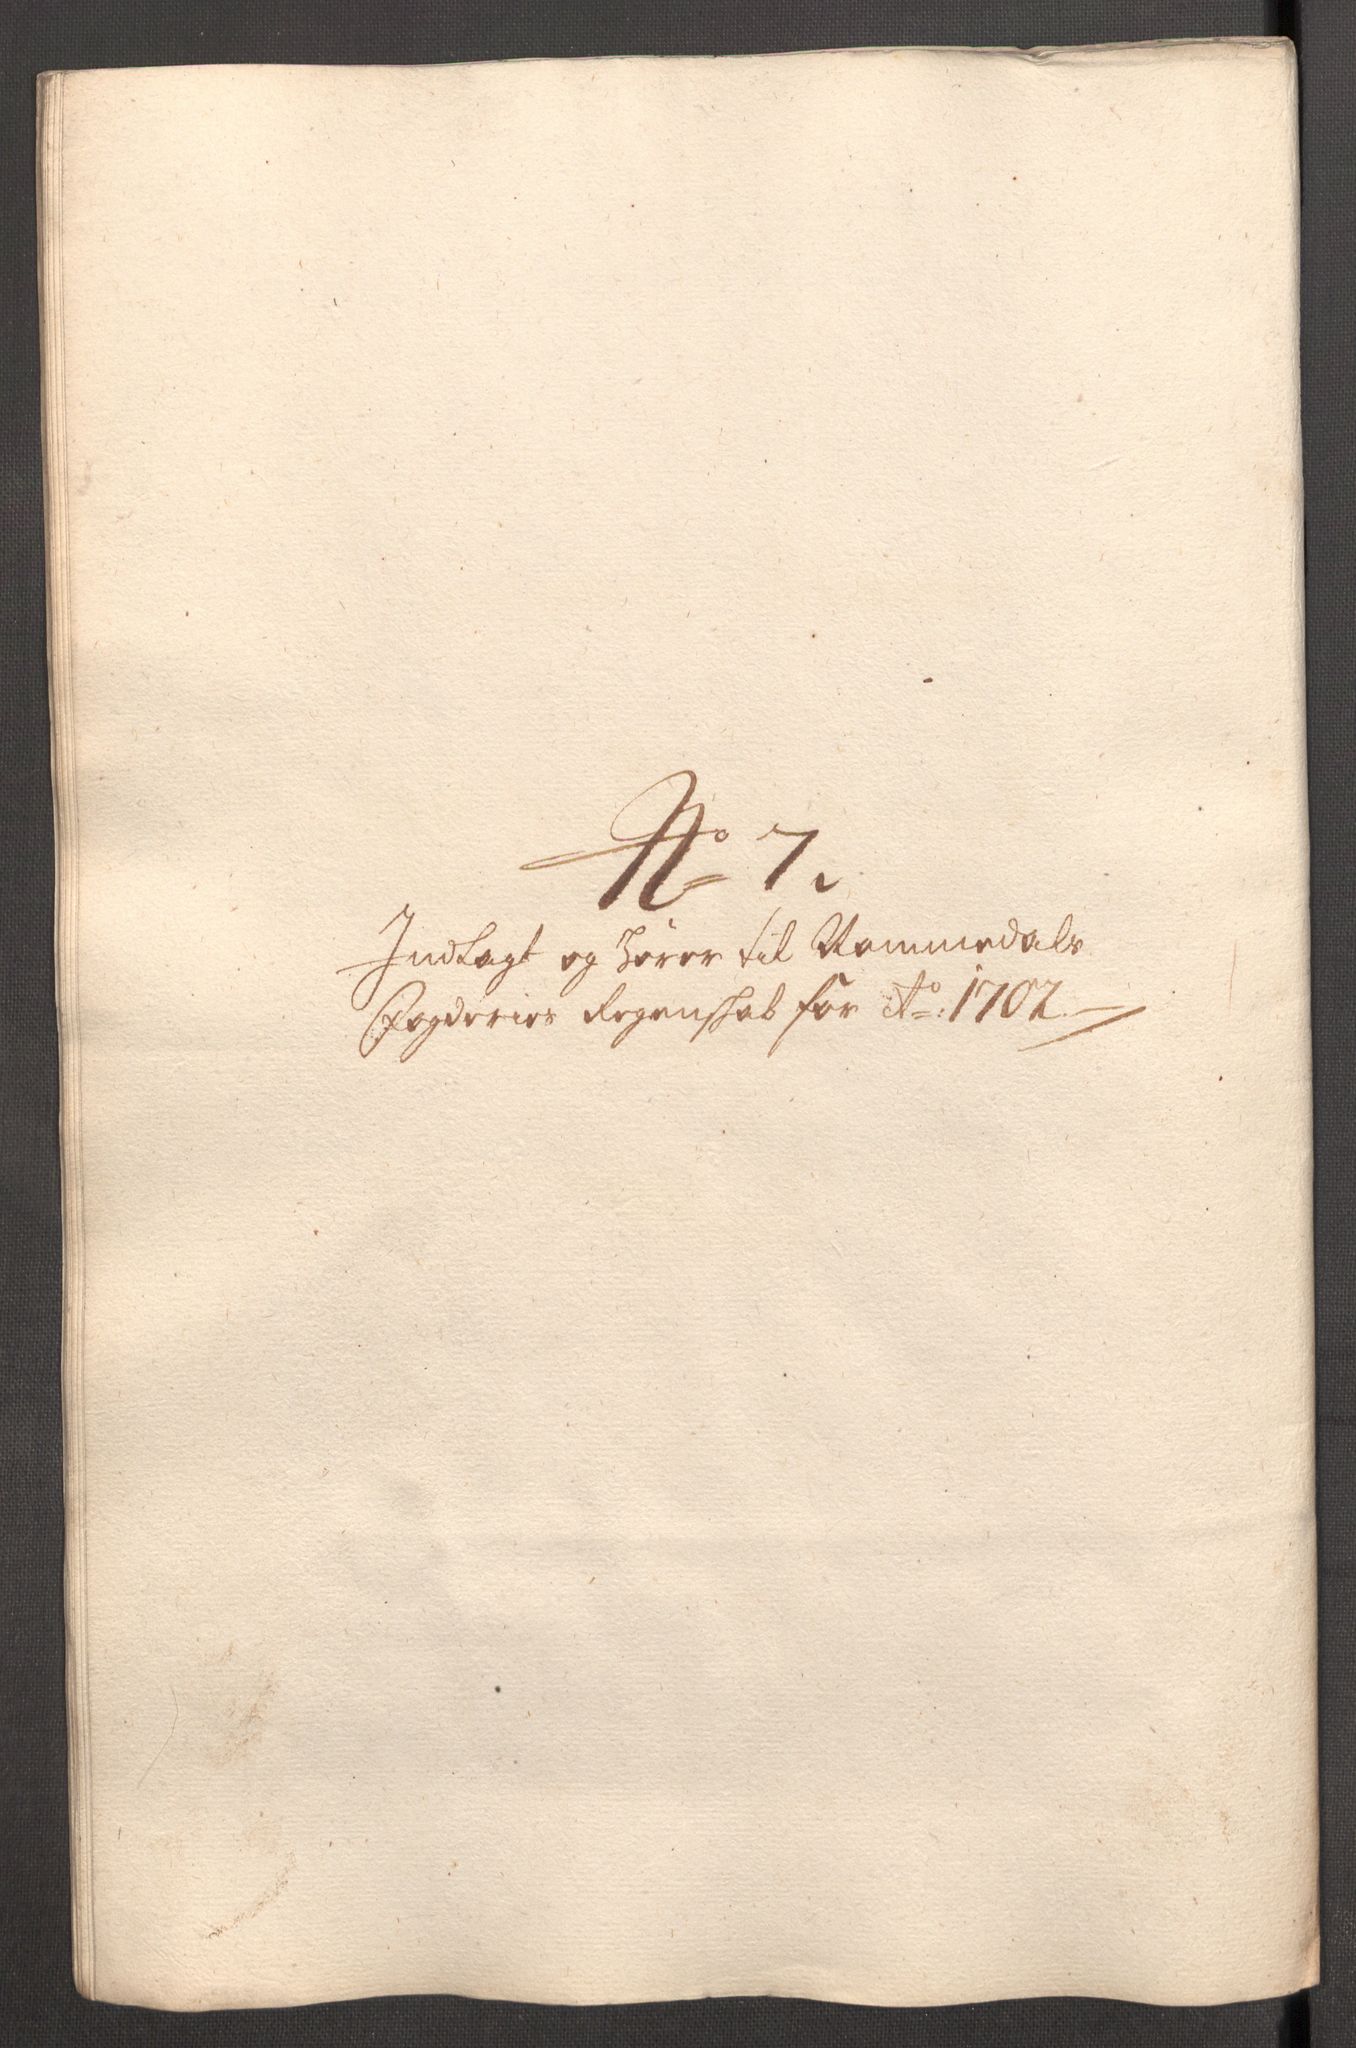 No 7.
Indlagt og hører til Nammedals
Fogderies Regenskab for Ao: 1702.